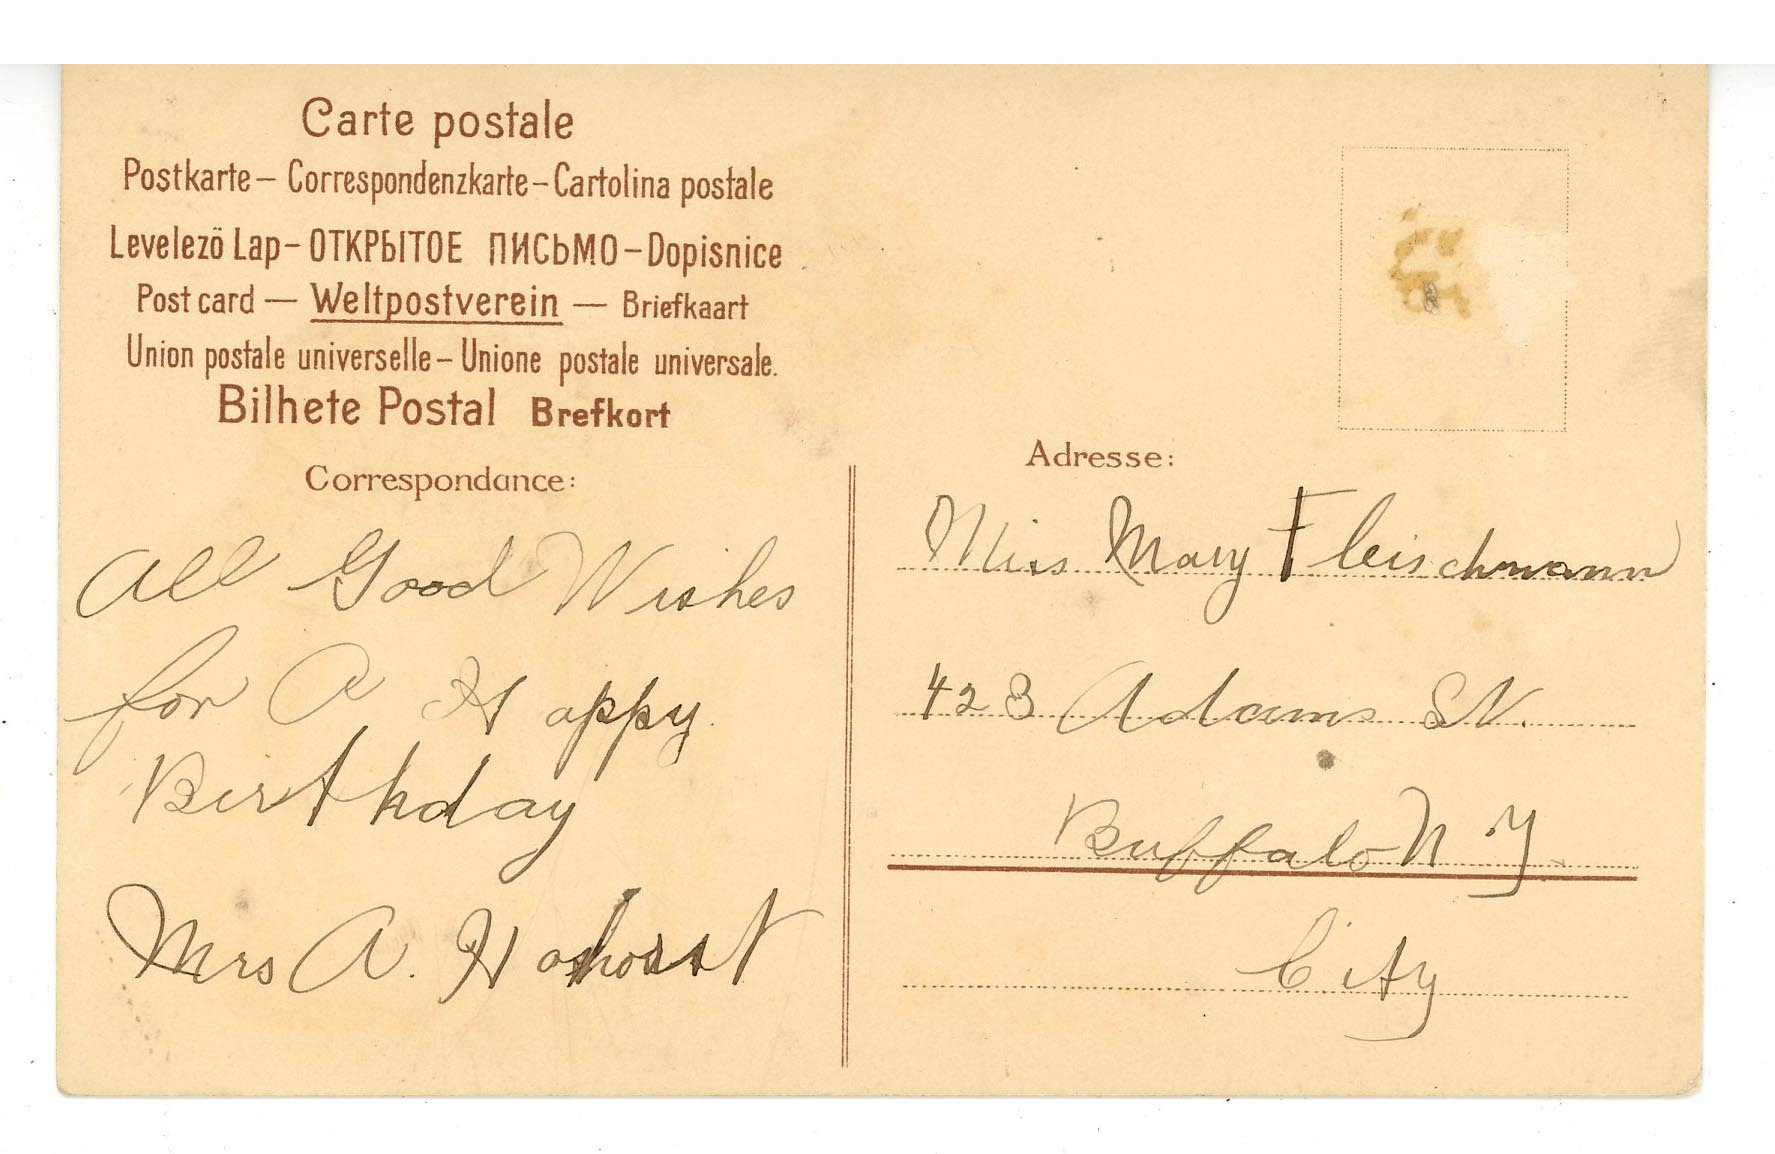 Carte postale
Postkarte – Correspondenzkarte – Cartolina postale
Levelező Lap – ОТКРЫТОЕ ПИСЬМО – Dopisnice
Post card — Weltpostverein — Briefkaart
Union postale universelle – Unione postale universale.
Bilhete Postal Brefkort
Correspondance:
All Good Wishes
for A Happy
Birthday
Mrs A.
Adresse:
Miss Mary Fleischmann
423 Adams St.
Buffalo N Y.
City